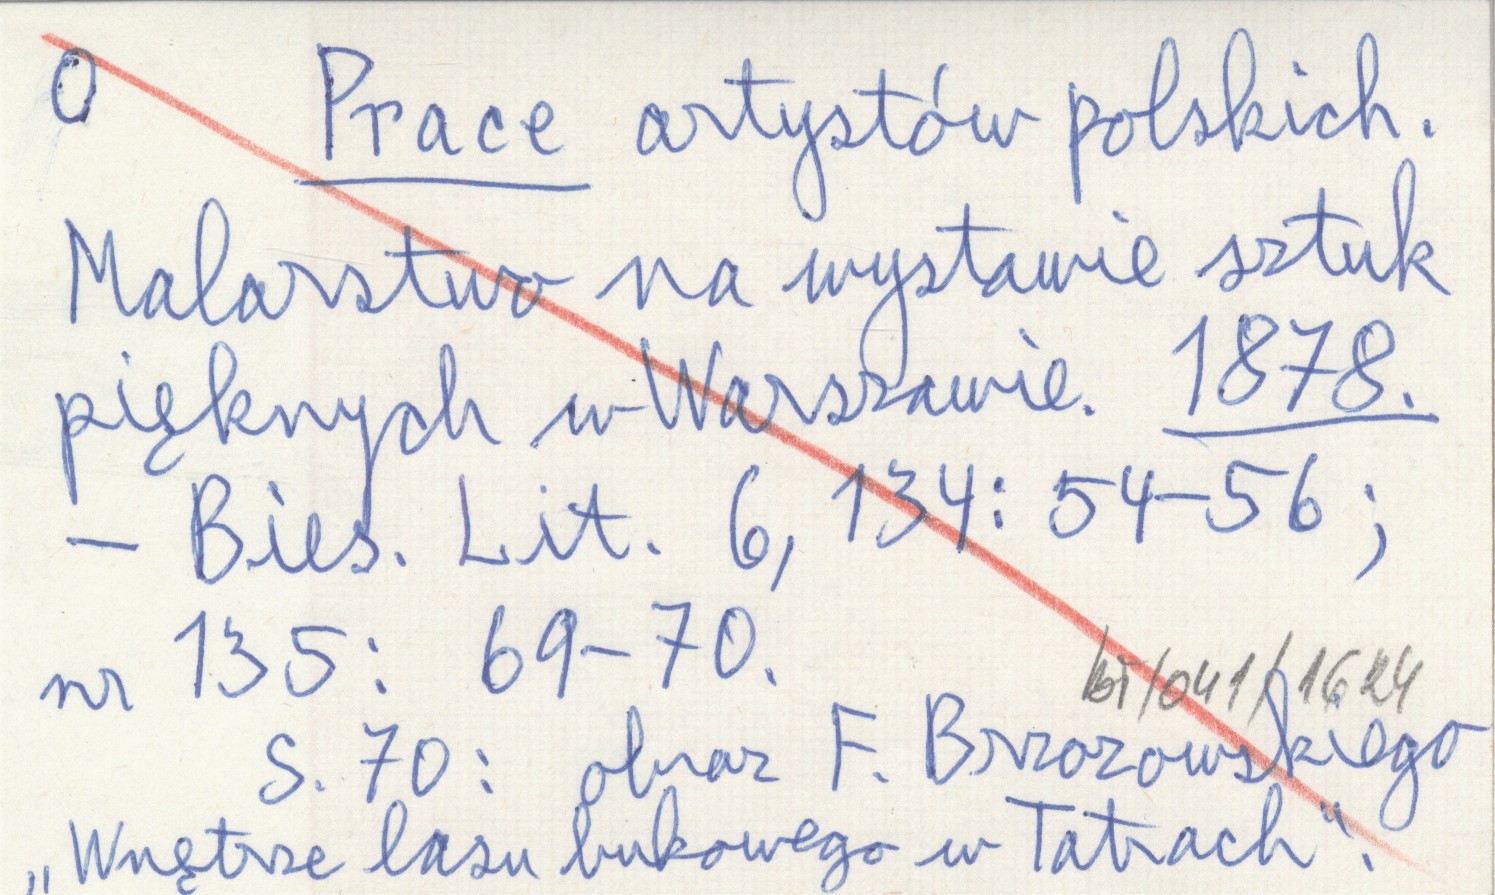 O Prace artystów polskich.
Malarstwo na wystawie sztuk
pięknych w Warszawie. 1878.
– Bies. Lit. 6, 134: 54–56;
nr 135: 69–70.
bT/041/1624
S. 70: obraz F. Brzozowskiego
„Wnętrze lasu bukowego w Tatrach".